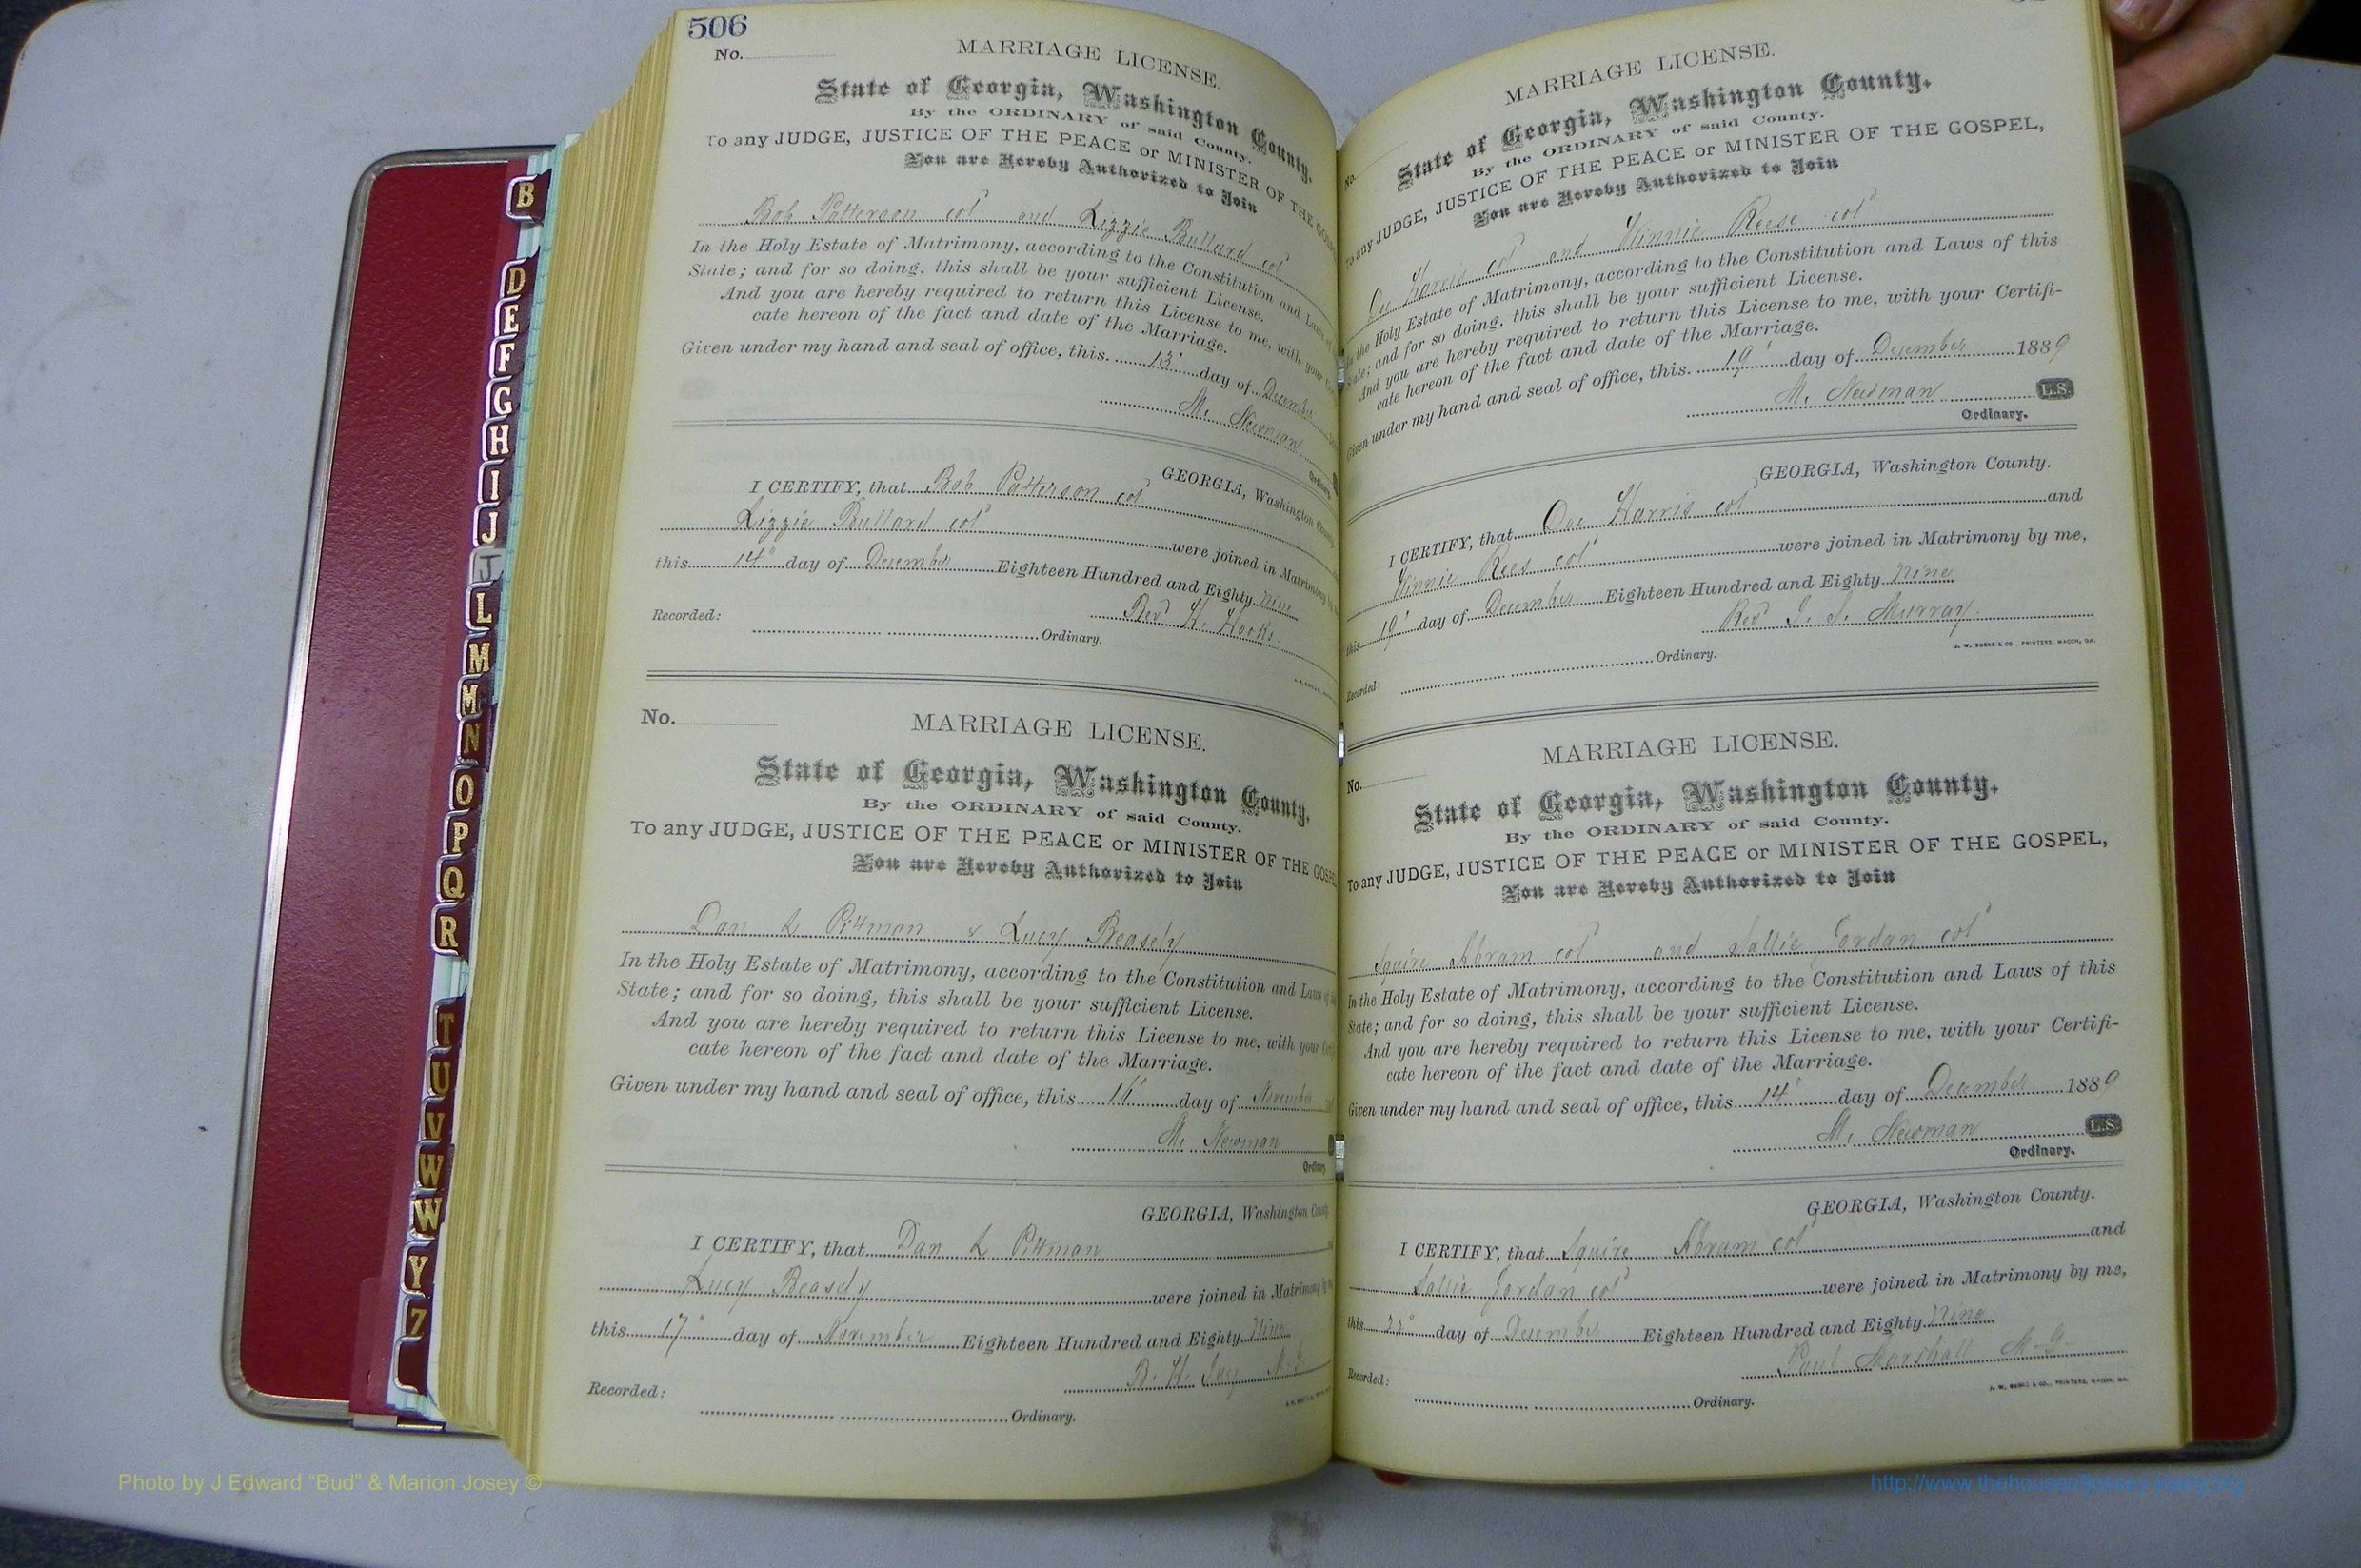 506
No.
MARRIAGE LICENSE.
State of Georgia, Washington County.
By the ORDINARY of said County.
To any JUDGE, JUSTICE OF THE PEACE or MINISTER OF THE GOSPEL
You are Hereby Authorized to Join
Bob Patterson col and Lizzie Bullard col
In the Holy Estate of Matrimony, according to the Constitution and Laws of
State; and for so doing, this shall be your sufficient License.
And you are hereby required to return this License to me, with your
cate hereon of the fact and date of the Marriage.
Given under my hand and seal of office, this 13' day of December
M. Newman
Ordinary.
GEORGIA, Washington County
I CERTIFY, that Bob Patterson col
Lizzie Bullard col were joined in Matrimony by
this 14" day of December Eighteen Hundred and Eighty nine
Revd H. Hooks
Recorded:
Ordinary.
No.
MARRIAGE LICENSE.
State of Georgia, Washington County.
By the ORDINARY of said County.
To any JUDGE, JUSTICE OF THE PEACE or MINISTER OF THE GOSP
You are Hereby Authorized to Join
Dan L Pittman & Lucy Beasely
In the Holy Estate of Matrimony, according to the Constitution and Laws of
State; and for so doing, this shall be your sufficient License.
And you are hereby required to return this License to me, with your
cate hereon of the fact and date of the Marriage.
Given under my hand and seal of office, this 16' day of November
M. Newman
Ordinary.
GEORGIA, Washington County
I CERTIFY, that Dan L Pittman
Lucy Beasely were joined in Matrimony by
this 17" day of November Eighteen Hundred and Eighty Nine
B. H. Ivey M.G
Recorded:
Ordinary.
MARRIAGE LICENSE.
No.
State of Georgia, Washington County.
By the ORDINARY of said County.
To any JUDGE, JUSTICE OF THE PEACE or MINISTER OF THE GOSPEL,
You are Hereby Authorized to Join
Doc Harris col and Winnie Reese col
In the Holy Estate of Matrimony, according to the Constitution and Laws of this
State; and for so doing, this shall be your sufficient License.
And you are hereby required to return this License to me, with your Certifi-
cate hereon of the fact and date of the Marriage.
Given under my hand and seal of office, this 19' day of December 1889
M. Newman L.S.
Ordinary.
GEORGIA, Washington County.
I CERTIFY, that Doc Harris col and
Winnie Rees col were joined in Matrimony by me,
this 19' day of December Eighteen Hundred and Eighty nine
Revd J. S. Murray
Recorded: Ordinary.
J. W. BURKE & CO., PRINTERS, MACON, GA.
MARRIAGE LICENSE.
No.
State of Georgia, Washington County.
By the ORDINARY of said County.
To any JUDGE, JUSTICE OF THE PEACE or MINISTER OF THE GOSPEL,
You are Hereby Authorized to Join
Squire Abram col and Sallie Jordan col
In the Holy Estate of Matrimony, according to the Constitution and Laws of this
State; and for so doing, this shall be your sufficient License.
And you are hereby required to return this License to me, with your Certifi-
cate hereon of the fact and date of the Marriage.
Given under my hand and seal of office, this 14' day of December 1889
M. Newman L.S.
Ordinary.
GEORGIA, Washington County.
I CERTIFY, that Squire Abram col and
Sallie Jordan col were joined in Matrimony by me,
this 22" day of December Eighteen Hundred and Eighty Nine
Paul Marshall M.G.
Recorded: Ordinary.
J. W. BURKE & CO., PRINTERS, MACON, GA.
B
D
E
F
G
H
I
J
J
L
M
M
N
O
P
Q
R
T
U
V
W
W
Y
Z
Photo by J Edward "Bud" & Marion Josey ©